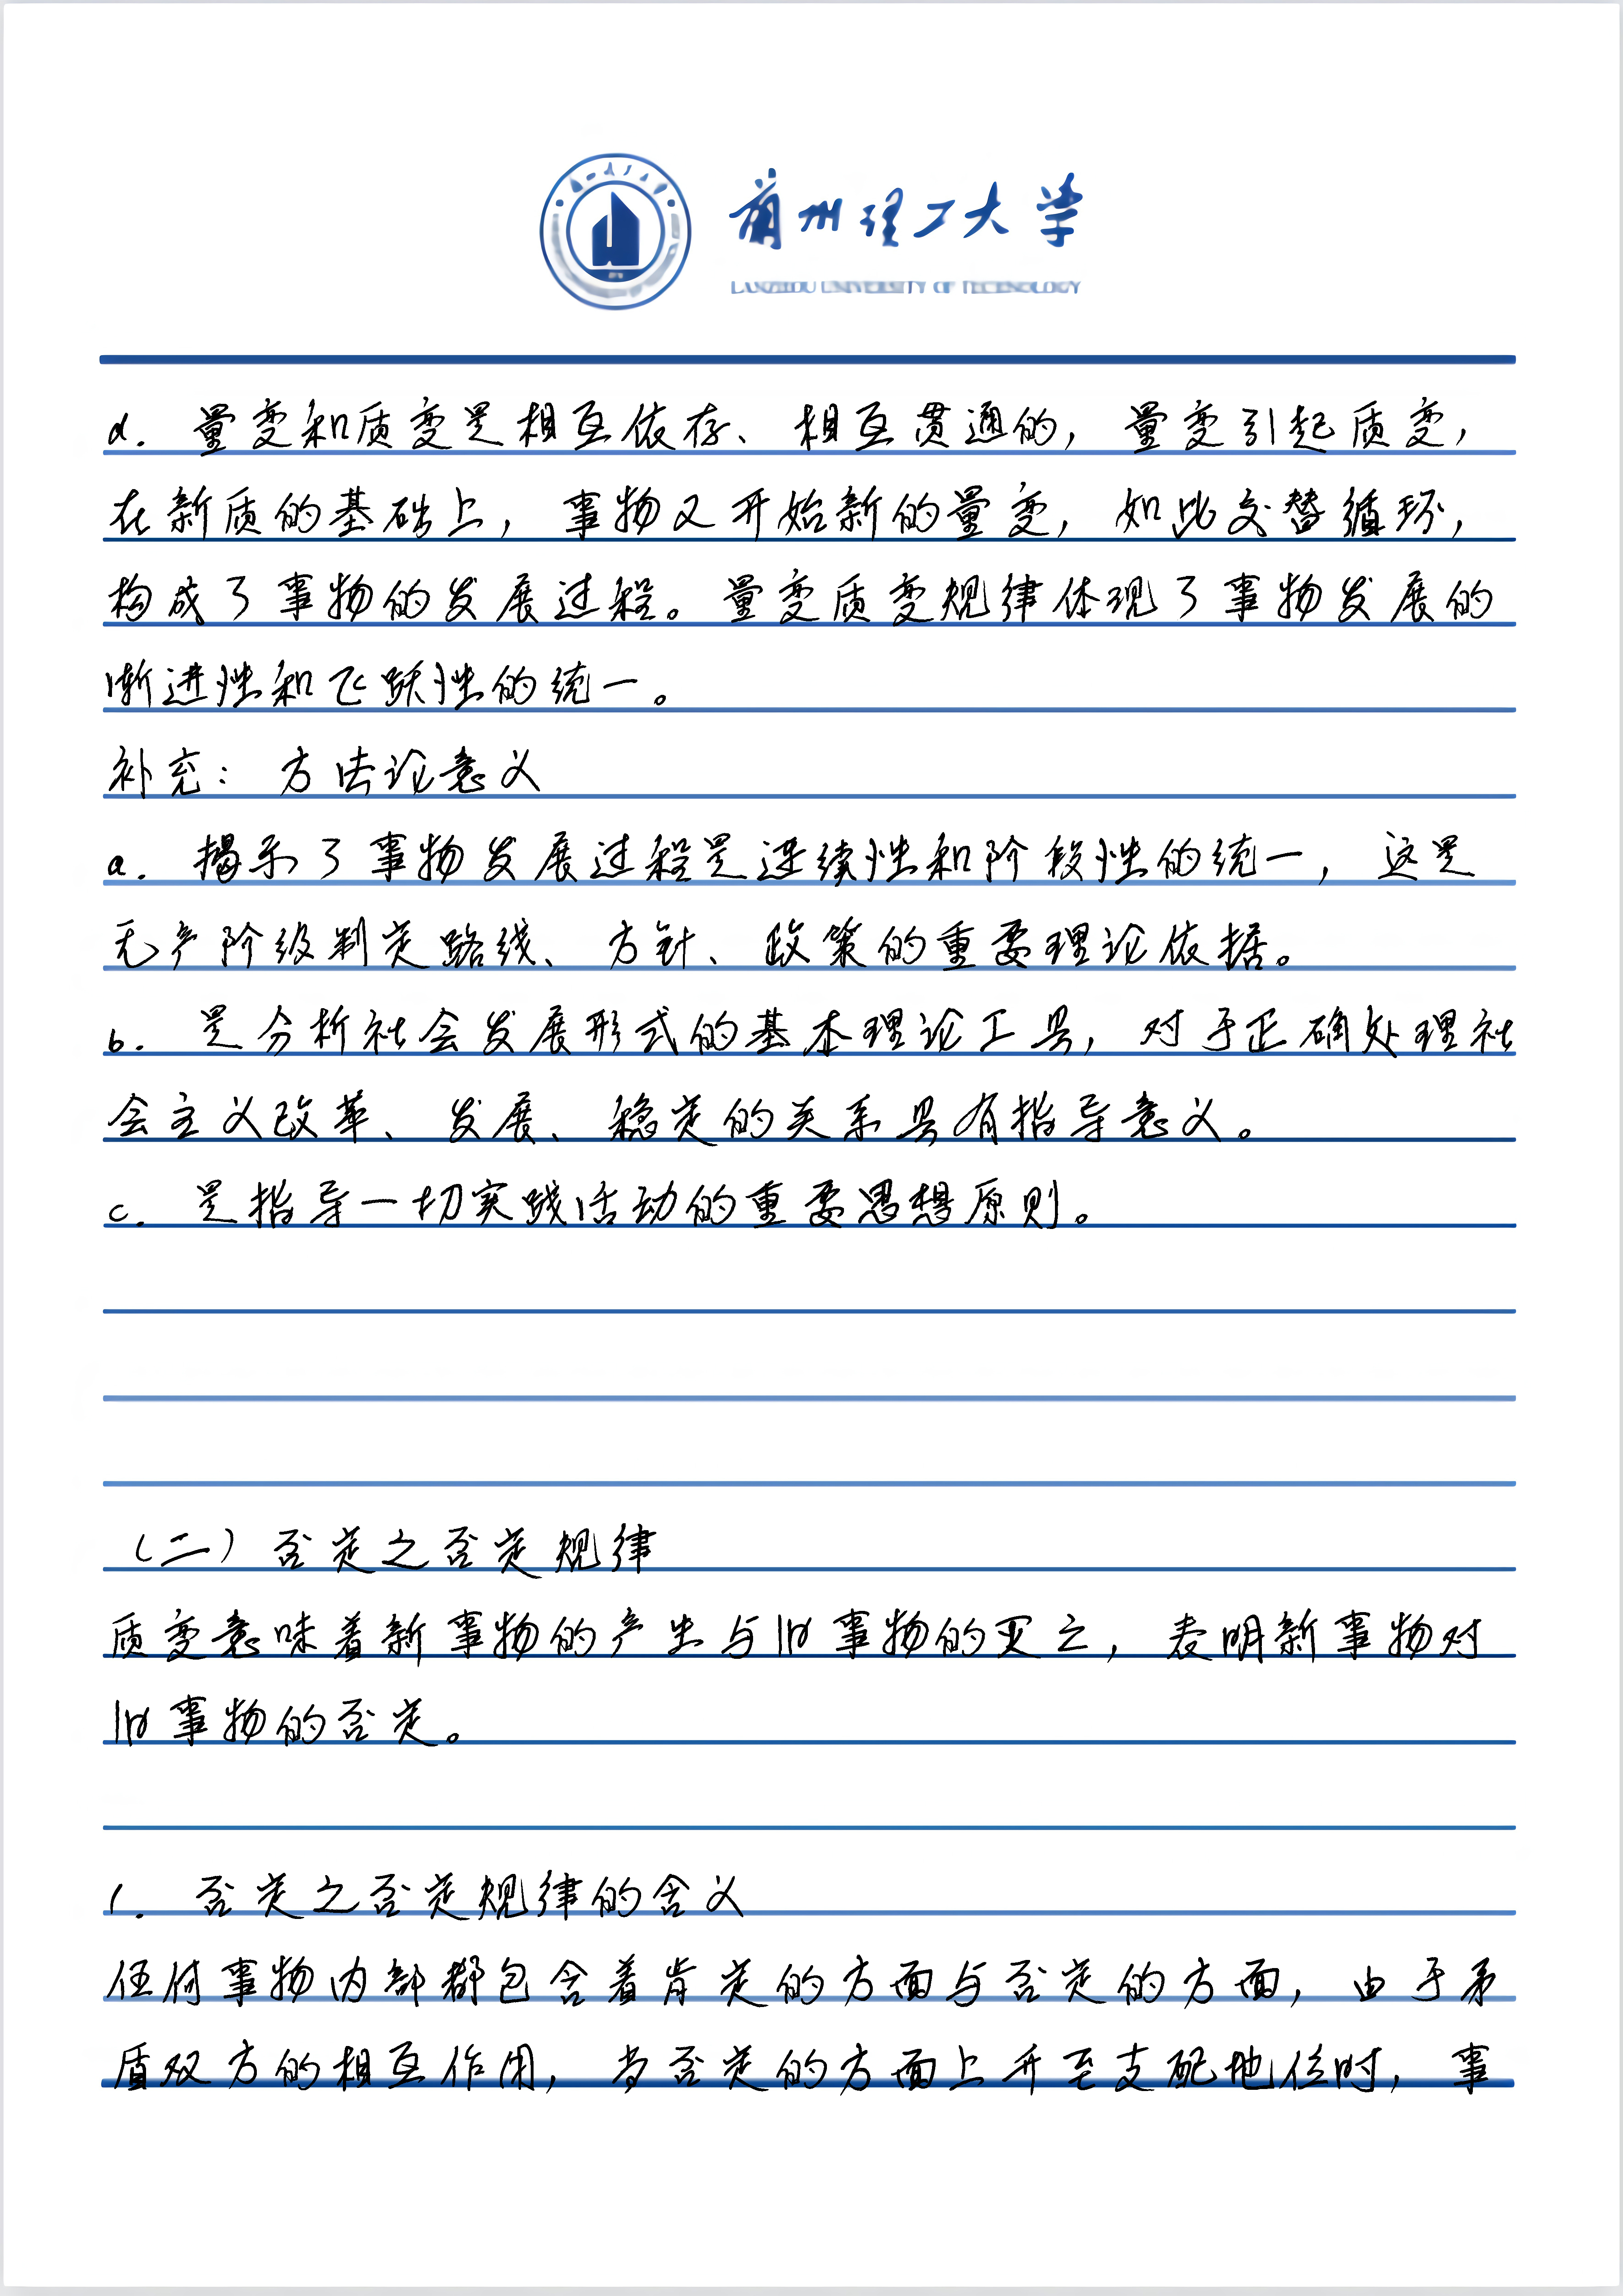 蘭州理工大学
LANZHOU UNIVERSITY OF TECHNOLOGY
d. 量变和质变是相互依存、相互贯通的，量变引起质变，
在新质的基础上，事物又开始新的量变，如此交替循环，
构成了事物的发展过程。量变质变规律体现了事物发展的
渐进性和飞跃性的统一。
补充：方法论意义
a. 揭示了事物发展过程是连续性和阶段性的统一，这是
无产阶级制定路线、方针、政策的重要理论依据。
b. 是分析社会发展形式的基本理论工具，对于正确处理社
会主义改革、发展、稳定的关系具有指导意义。
c. 是指导一切实践活动的重要思想原则。
（二）否定之否定规律
质变意味着新事物的产生与旧事物的灭亡，表明新事物对
旧事物的否定。
1. 否定之否定规律的含义
任何事物内部都包含着肯定的方面与否定的方面，由于矛
盾双方的相互作用，当否定的方面上升至支配地位时，事